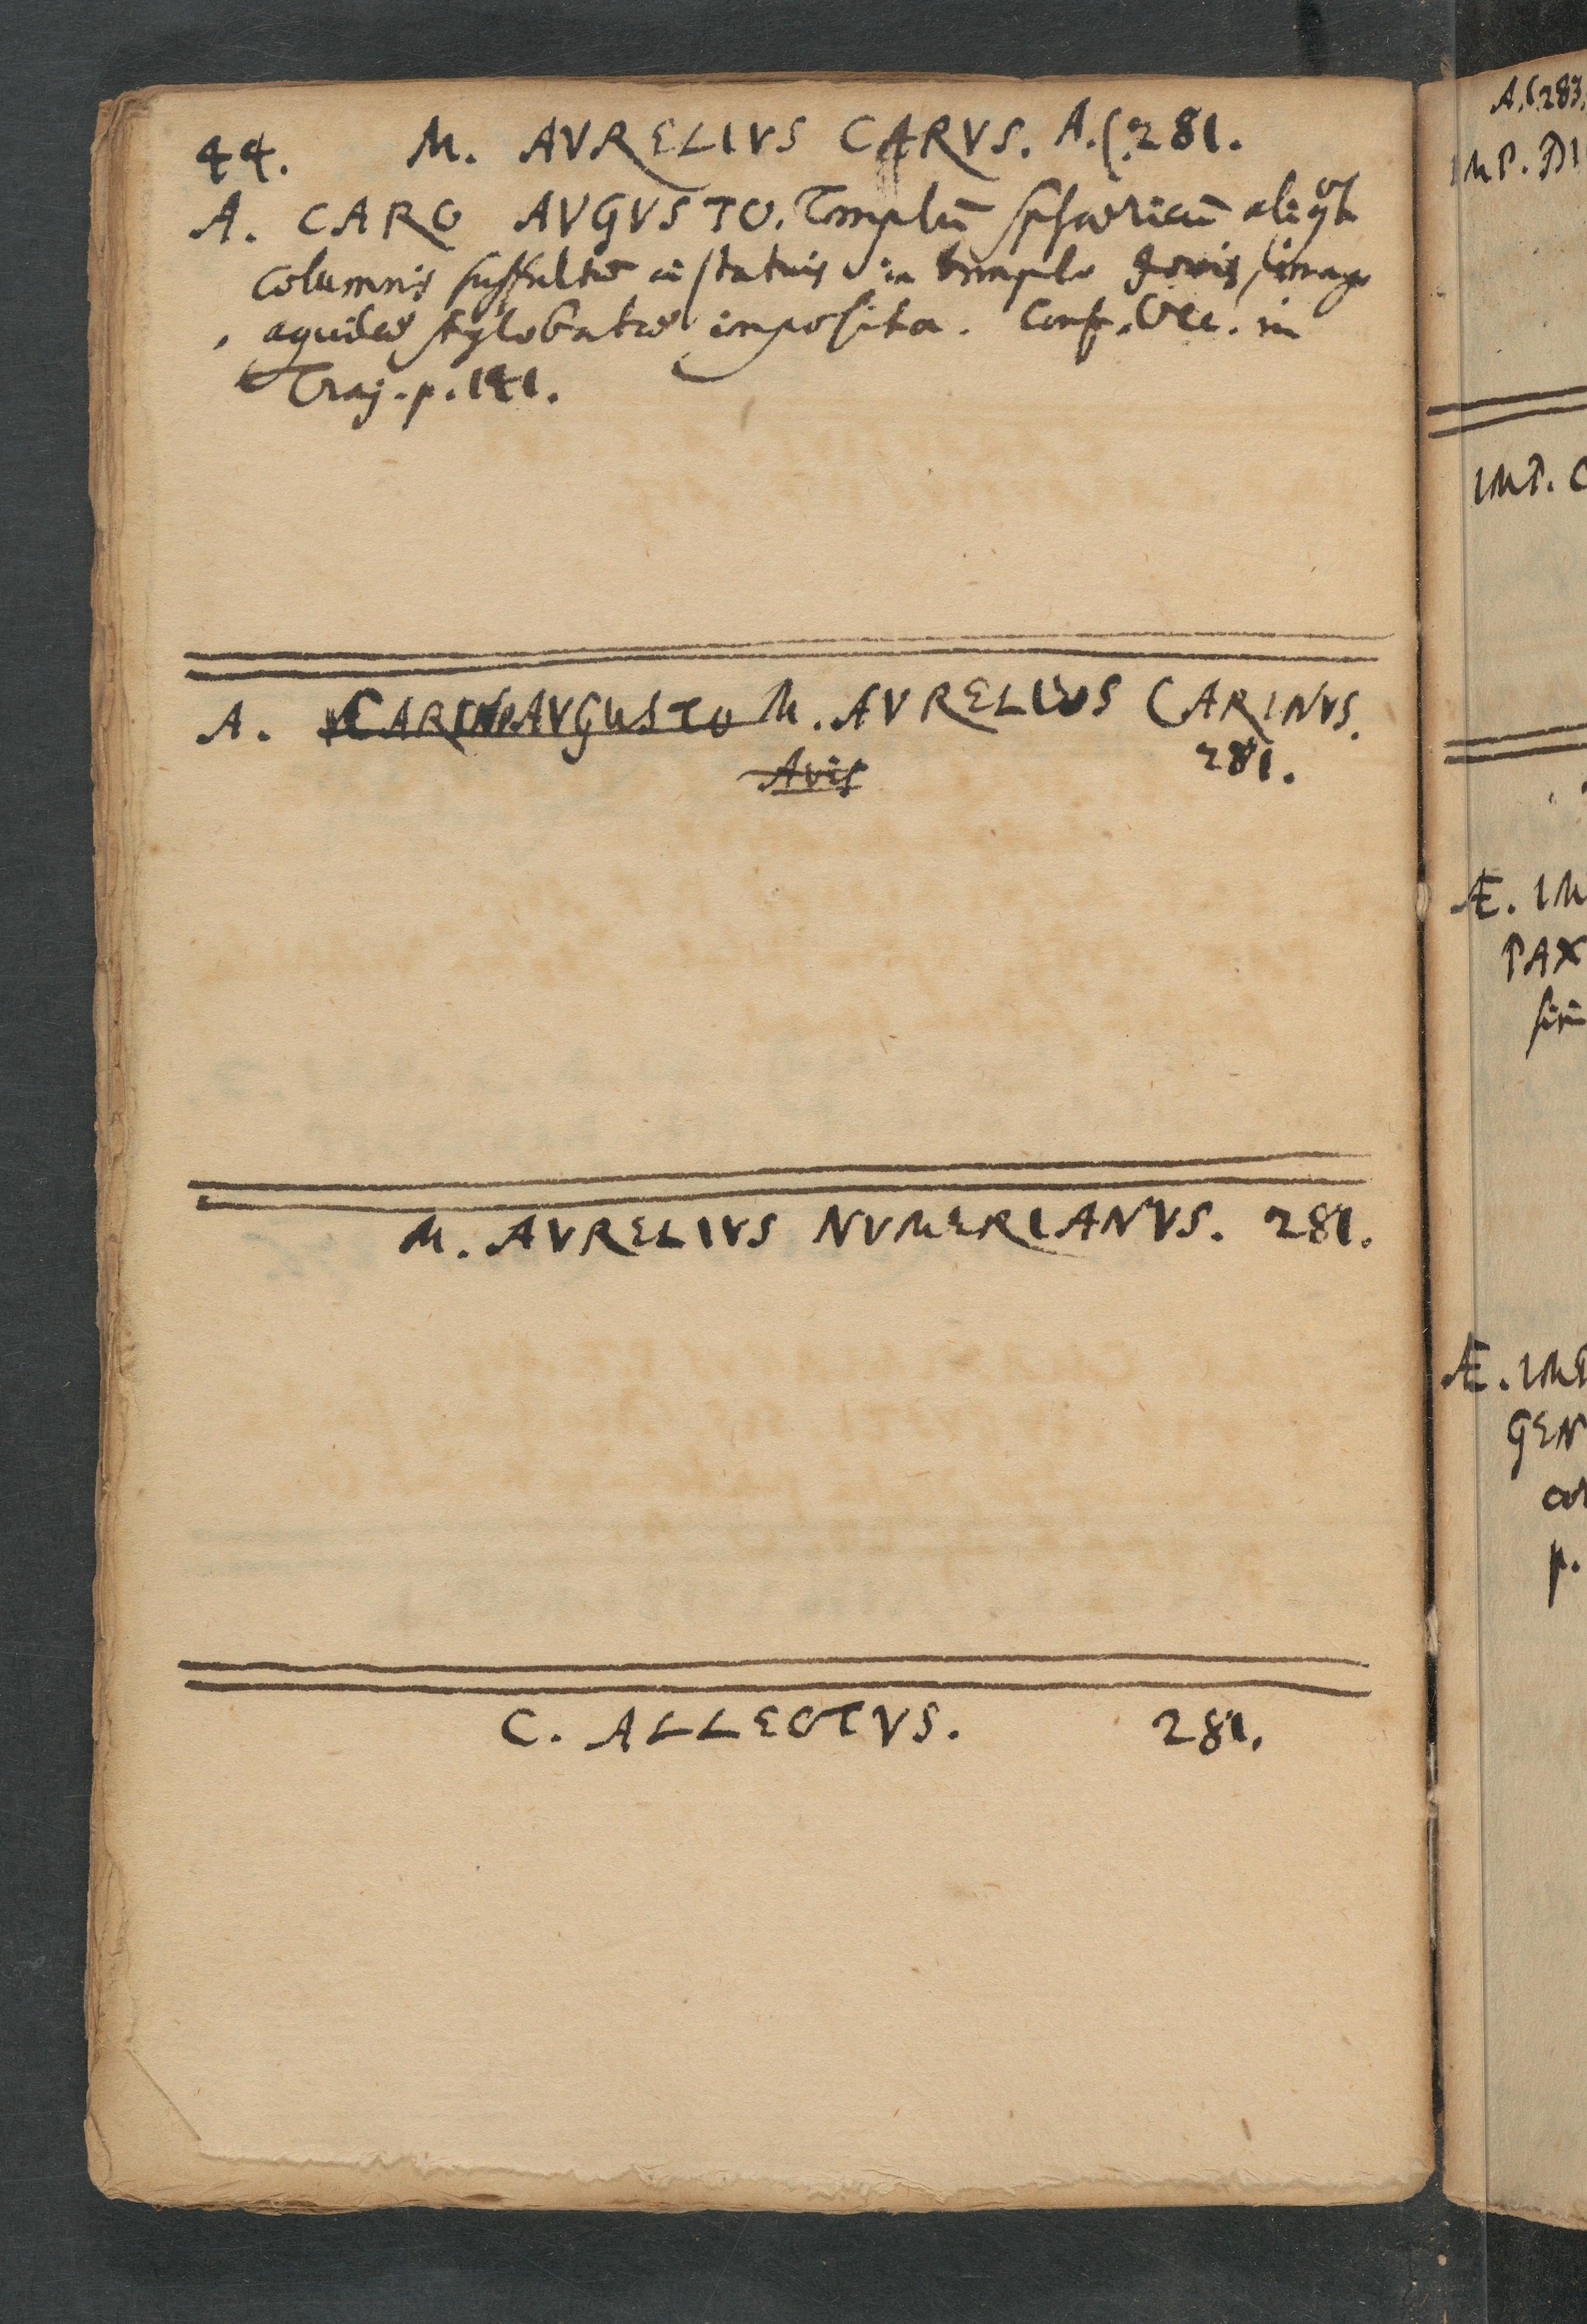 44. M. AVRELIVS CARVS. A.C. 281.
A. CARO AVGVSTO. Templū sphæricū aliqt
columnis suffultū statuis in templo Jovis, imago
aquilæ stylobatæ imposita. Conf. Occ. in
Traj. p. 141.
A. CARINO AVGUSTO M. AVRELIVS CARINVS.
Avis 281.
M. AVRELIVS NVMERIANVS. 281.
C. ALLECTVS. 281.
A.C. 283.
IMP. DI
IMP. C
Æ. IM
PAX
Æ. IMP
GEN
p.